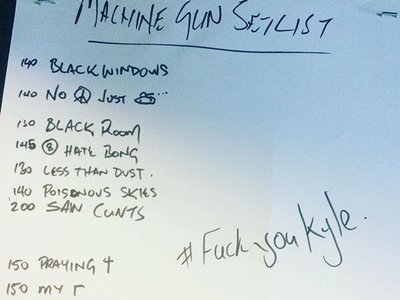 MACHINE GUN SETLIST
140 BLACKWINDOWS
140 NO ☮ JUST ...
130 BLACK ROOM
145 ⑧ HATE BONG
130 LESS THAN DUST.
140 POISONOUS SKIES
200 SAW CUNTS
#Fuck you Kyle.
150 PRAYING 4
150 MY